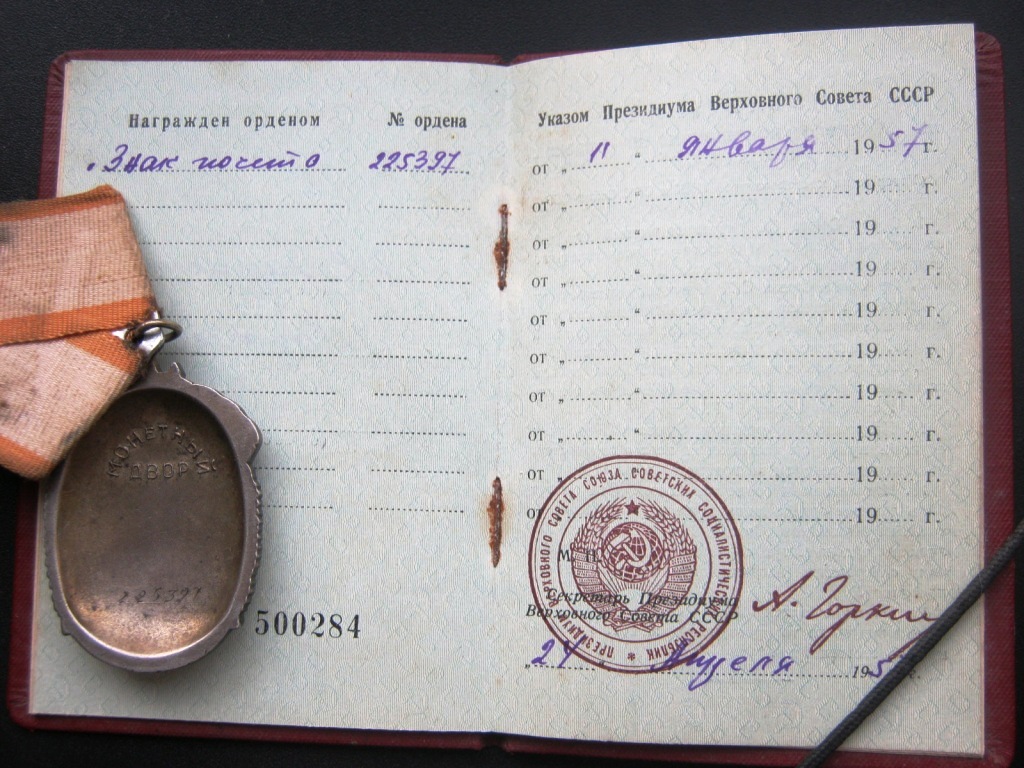 Награжден орденом № ордена
„Знак почета 225397
Указом Президиума Верховного Совета СССР
от „ 11 “ января 1957 г.
от „ “ 19 г.
от „ “ 19 г.
от „ “ 19 г.
от „ “ 19 г.
от „ “ 19 г.
от „ “ 19 г.
от „ “ 19 г.
от „ “ 19 г.
от „ “ 19 г.
МОНЕТНЫЙ
ДВОР
225397
500284
ПРЕЗИДИУМ ВЕРХОВНОГО СОВЕТА СОЮЗА СОВЕТСКИХ СОЦИАЛИСТИЧЕСКИХ РЕСПУБЛИК
М. П.
Секретарь Президиума
Верховного Совета СССР
А. Горкин
„24 “ Апреля 195